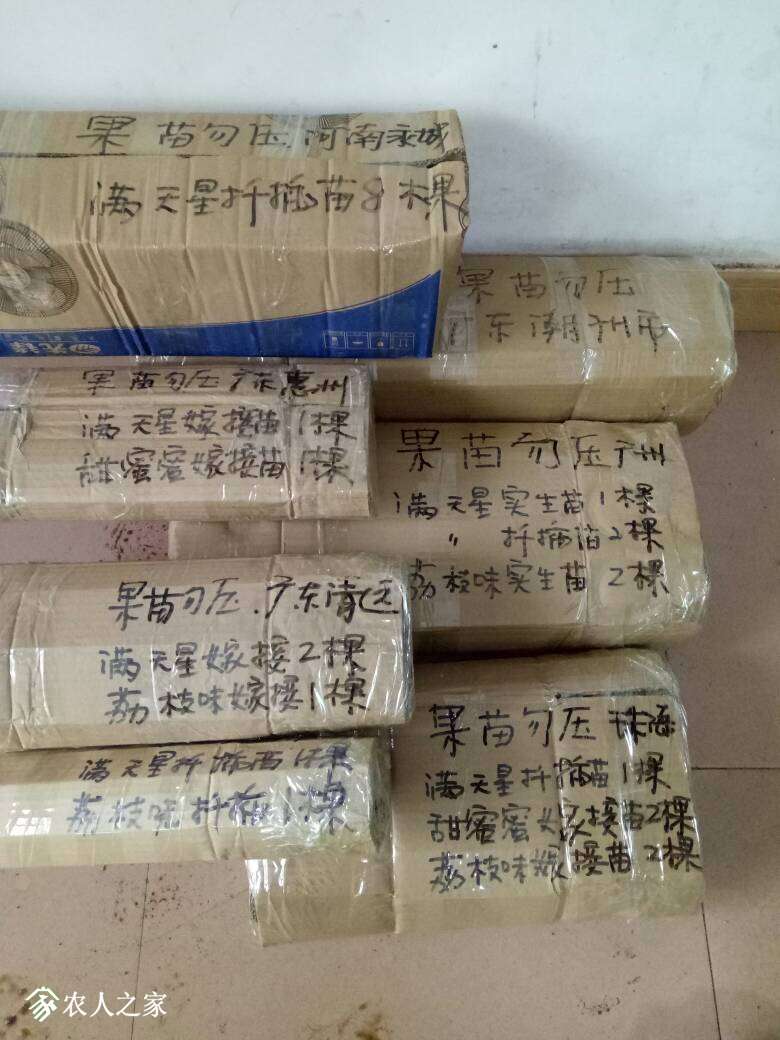 果苗勿压 河南永城
满天星扦插苗8棵
果苗勿压
广东潮州市
果苗勿压广东惠州
满天星嫁接苗1棵
甜蜜蜜嫁接苗1棵
果苗勿压广州
满天星实生苗1棵
〃 扦插苗2棵
荔枝味实生苗2棵
果苗勿压.广东清远
满天星嫁接2棵
荔枝味嫁接1棵
果苗勿压 珠海
满天星扦插苗1棵
甜蜜蜜嫁接苗2棵
荔枝味嫁接苗2棵
满天星扦插苗1棵
荔枝味扦插1棵
农人之家